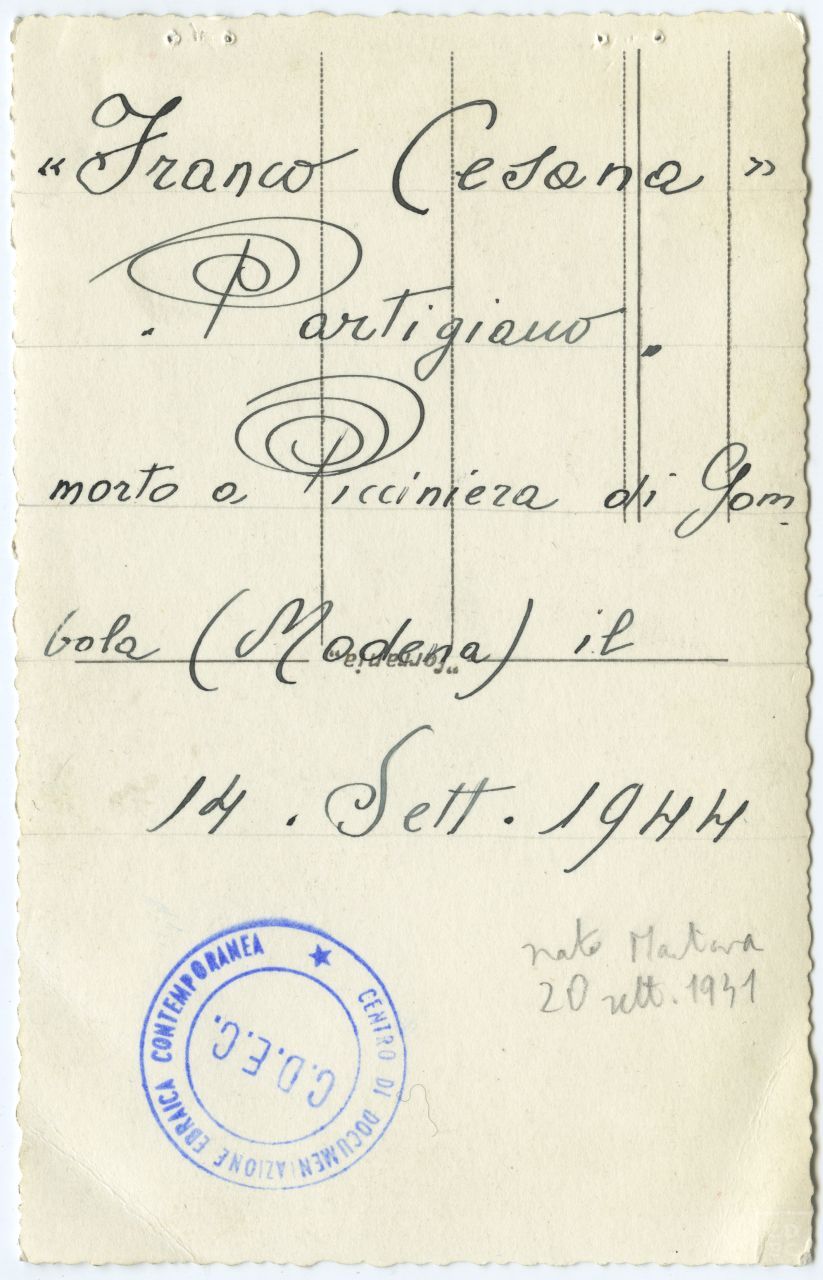 « Franco Cesana »
. Partigiano .
morto a Picciniera di Gom-
bola (Modena) il
"Ferrania"
14 . Sett. 1944
nato Mantova
20 sett. 1931
CENTRO DI DOCUMENTAZIONE EBRAICA CONTEMPORANEA ★
C.D.E.C.